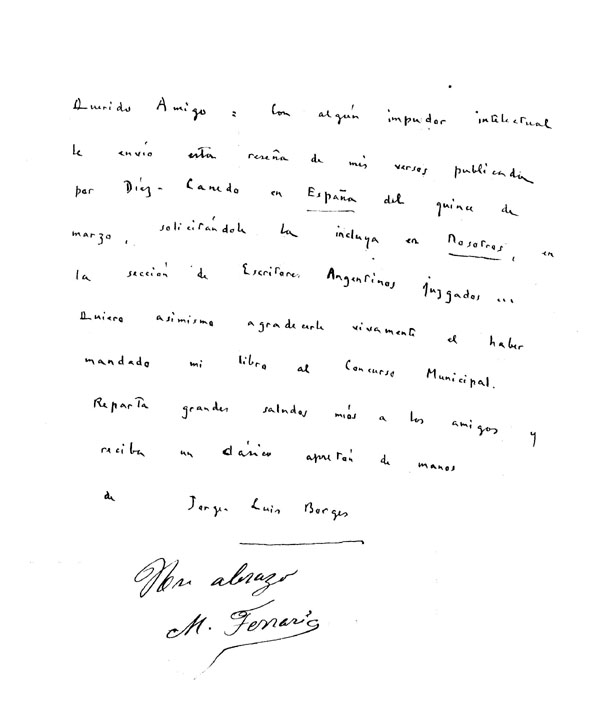 Querido Amigo : Con algún impudor intelectual
le envío esta reseña de mis versos publicada
por Díez-Canedo en España del quince de
marzo, solicitándole la incluya en Nosotros, en
la sección de Escritores Argentinos juzgados ...
Quiero asimismo agradecerle vivamente el haber
mandado mi libro al Concurso Municipal.
Reparta grandes saludos míos a los amigos y
reciba un clásico apretón de manos
de Jorge Luis Borges
Un abrazo
M. Ferraris